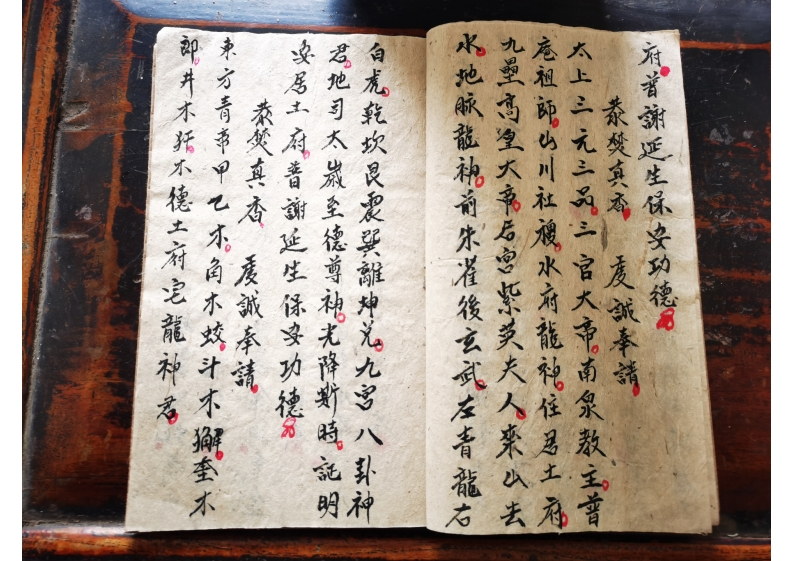 府普謝延生保安功德
恭焚真香 虔誠奉請
太上三元三品三官大帝南泉教主普
庵祖郎山川社稷水府龍神住居土府
九壘高皇大帝后宮紫英夫人來山去
水地脉龍神前朱雀後玄武左青龍右
白虎乾坎艮震巽離坤兌九宮八卦神
君地司太歲至德尊神光降斯時証明
安居土府普謝延生保安功德
恭焚真香 虔誠奉請
東方青帝甲乙木角木蛟斗木獬奎木
郎井木犴木德土府宅龍神君